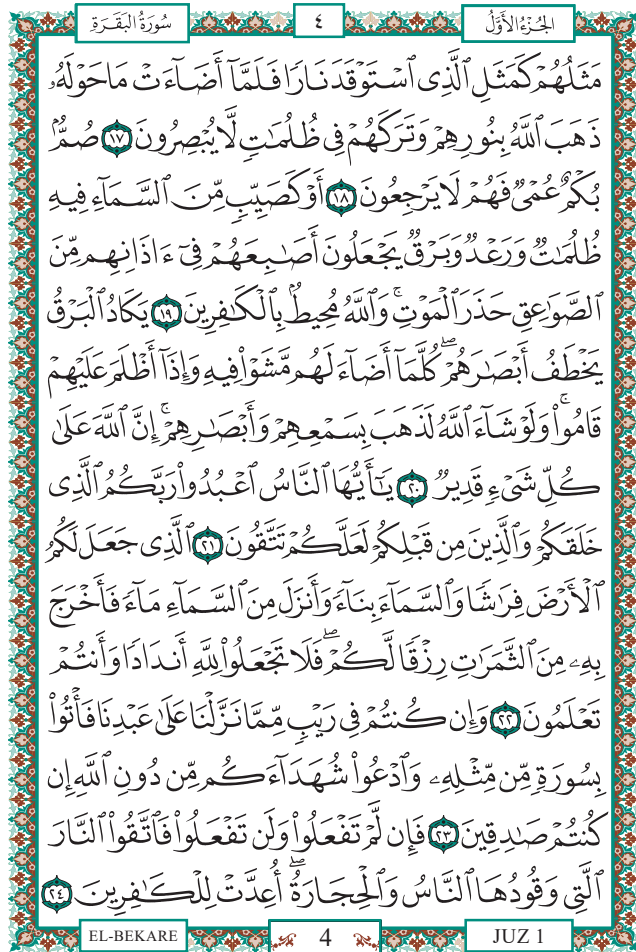 سُورَةُ البَقَرَةِ ٤ الجُزْءُ الأَوَّلُ
مَثَلُهُمْ كَمَثَلِ ٱلَّذِى ٱسْتَوْقَدَ نَارًا فَلَمَّآ أَضَآءَتْ مَا حَوْلَهُۥ
ذَهَبَ ٱللَّهُ بِنُورِهِمْ وَتَرَكَهُمْ فِى ظُلُمَـٰتٍ لَّا يُبْصِرُونَ ١٧ صُمٌّۢ
بُكْمٌ عُمْىٌ فَهُمْ لَا يَرْجِعُونَ ١٨ أَوْ كَصَيِّبٍ مِّنَ ٱلسَّمَآءِ فِيهِ
ظُلُمَـٰتٌ وَرَعْدٌ وَبَرْقٌ يَجْعَلُونَ أَصَـٰبِعَهُمْ فِىٓ ءَاذَانِهِم مِّنَ
ٱلصَّوَٰعِقِ حَذَرَ ٱلْمَوْتِ ۚ وَٱللَّهُ مُحِيطٌۢ بِٱلْكَـٰفِرِينَ ١٩ يَكَادُ ٱلْبَرْقُ
يَخْطَفُ أَبْصَـٰرَهُمْ ۖ كُلَّمَآ أَضَآءَ لَهُم مَّشَوْا۟ فِيهِ وَإِذَآ أَظْلَمَ عَلَيْهِمْ
قَامُوا۟ ۚ وَلَوْ شَآءَ ٱللَّهُ لَذَهَبَ بِسَمْعِهِمْ وَأَبْصَـٰرِهِمْ ۚ إِنَّ ٱللَّهَ عَلَىٰ
كُلِّ شَىْءٍ قَدِيرٌ ٢٠ يَـٰٓأَيُّهَا ٱلنَّاسُ ٱعْبُدُوا۟ رَبَّكُمُ ٱلَّذِى
خَلَقَكُمْ وَٱلَّذِينَ مِن قَبْلِكُمْ لَعَلَّكُمْ تَتَّقُونَ ٢١ ٱلَّذِى جَعَلَ لَكُمُ
ٱلْأَرْضَ فِرَٰشًا وَٱلسَّمَآءَ بِنَآءً وَأَنزَلَ مِنَ ٱلسَّمَآءِ مَآءً فَأَخْرَجَ
بِهِۦ مِنَ ٱلثَّمَرَٰتِ رِزْقًا لَّكُمْ ۖ فَلَا تَجْعَلُوا۟ لِلَّهِ أَندَادًا وَأَنتُمْ
تَعْلَمُونَ ٢٢ وَإِن كُنتُمْ فِى رَيْبٍ مِّمَّا نَزَّلْنَا عَلَىٰ عَبْدِنَا فَأْتُوا۟
بِسُورَةٍ مِّن مِّثْلِهِۦ وَٱدْعُوا۟ شُهَدَآءَكُم مِّن دُونِ ٱللَّهِ إِن
كُنتُمْ صَـٰدِقِينَ ٢٣ فَإِن لَّمْ تَفْعَلُوا۟ وَلَن تَفْعَلُوا۟ فَٱتَّقُوا۟ ٱلنَّارَ
ٱلَّتِى وَقُودُهَا ٱلنَّاسُ وَٱلْحِجَارَةُ ۖ أُعِدَّتْ لِلْكَـٰفِرِينَ ٢٤
EL-BEKARE 4 JUZ 1